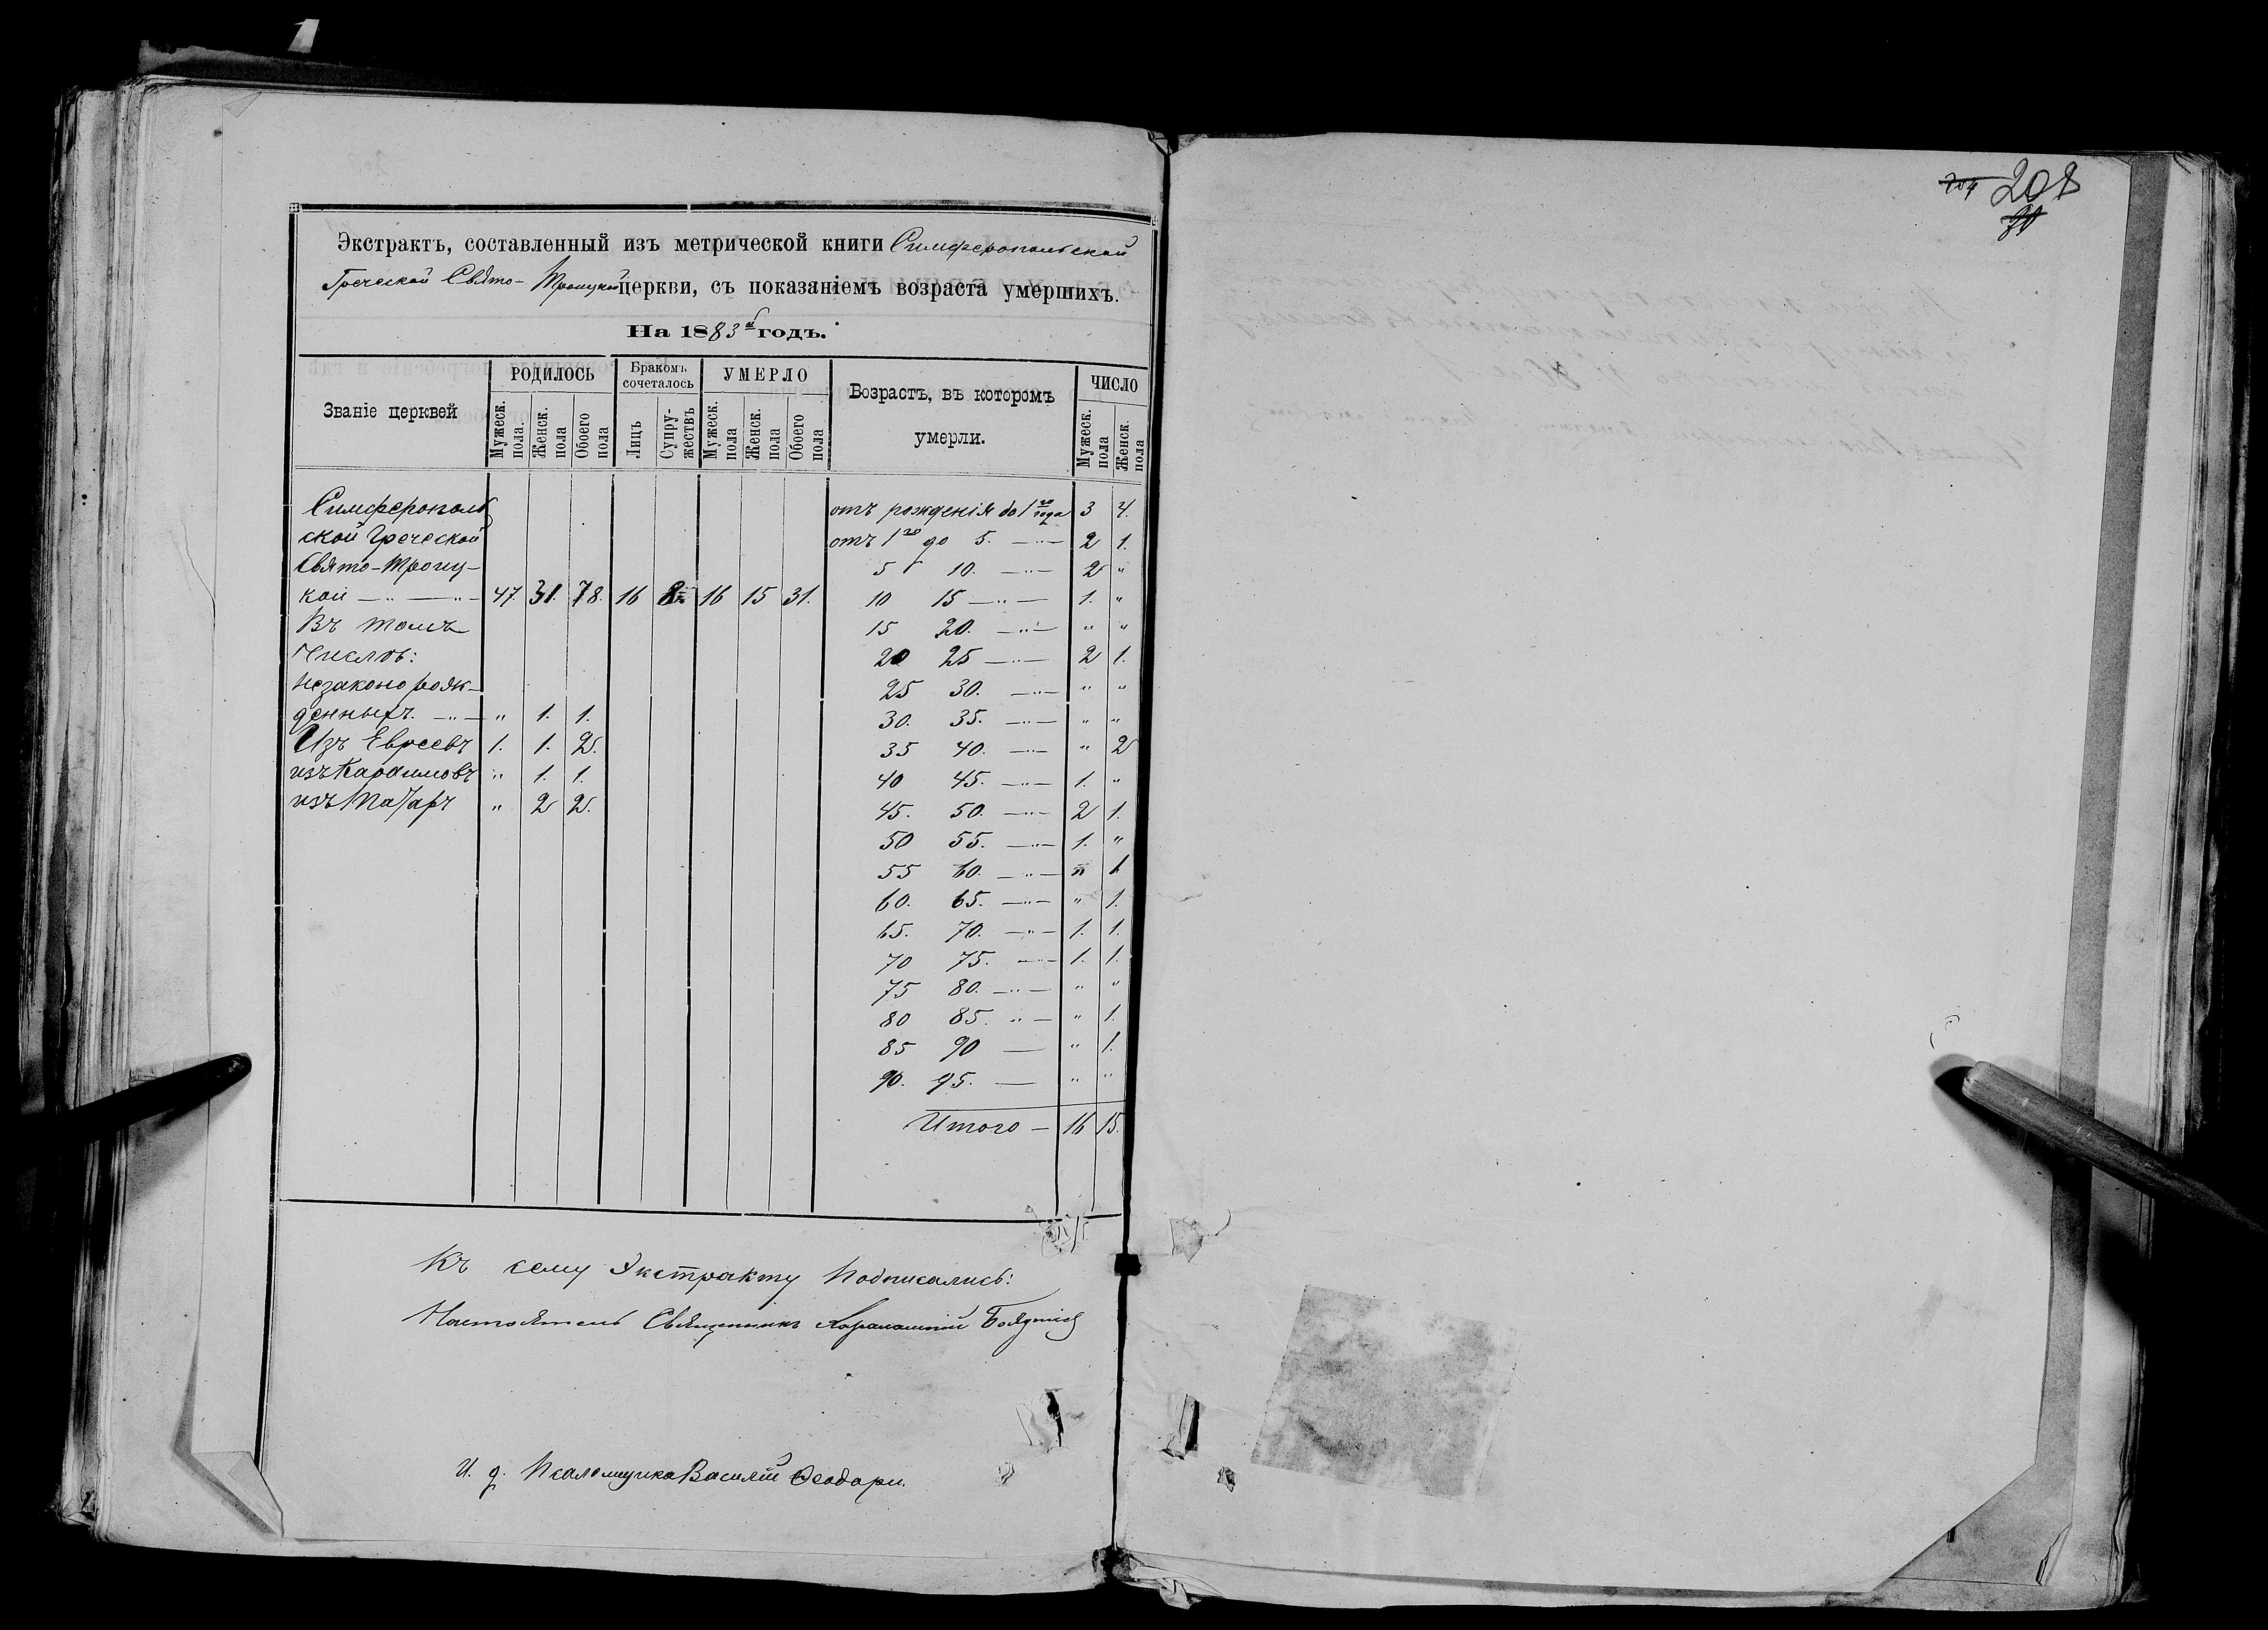 Экстрактъ, составленный изъ метрической книги Симферопольской
Греческой Свято-Троицкой церкви, съ показаніемъ возраста умершихъ.
На 1883й годъ.
Званіе церквей РОДИЛОСЬ Бракомъ сочеталось УМЕРЛО Возрастъ, въ которомъ умерли. ЧИСЛО
Мужеск. пола. Женск. пола Обоего пола Лицъ Супружествъ Мужеск. пола Женск. пола Обоего пола Мужеск. пола Женск. пола
Симферополь
ской Греческой
Свято-Троиц-
кой — " — " — 47. 31. 78. 16 8 16 15 31.
Въ томъ
числѣ:
незаконорож-
денныхъ. — " — " 1. 1.
Изъ Евреевъ 1. 1. 2.
изъ Караимовъ " 1. 1.
изъ Татаръ " 2 2.
отъ рожденія до 1го года 3 4.
отъ 1го до 5. — " — 2 1.
5 10. — " — 2 "
10 15 — " — 1. "
15 20. — " — " "
20 25 — " — 2 1.
25 30. — " — " "
30. 35. — " — " "
35 40. — " — " 2
40 45. — " — 1. "
45. 50. — " — 2 1.
50 55. — " — 1. "
55 60. — " — " 1
60. 65. — " — " 1.
65. 70. — " — 1. 1.
70 75. — " — 1. 1.
75 80. — " — " "
80 85. " — " 1.
85 90 — " 1.
90. 95. — " "
Итого — 16 15.
Къ сему Экстракту подписались:
Настоятель Священникъ Харалампій
И. д. Псаломщика Василій Феодори.
204 208